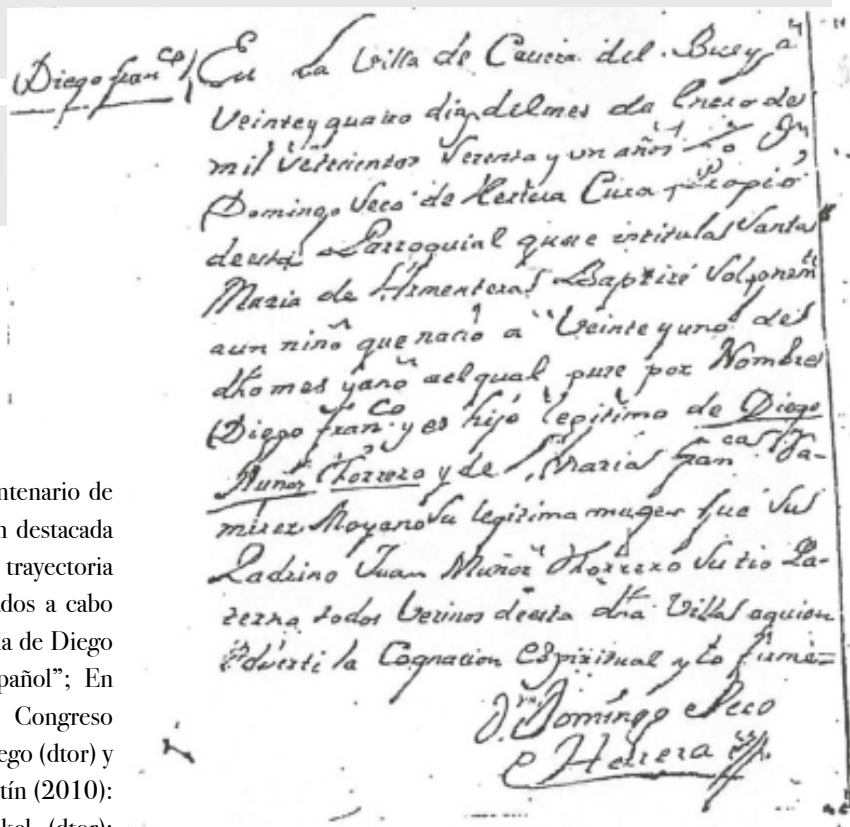 Diego fran.co
En la Villa de Caveza del Buey a
Veinte y quatro dias del mes de Enero de
mil Setecientos Sesenta y un años Yo Dn
Domingo Seco de Herrera Cura Propio
de esta Parroquial que se intitula Santa
Maria de Armentera Baptizé Solemnemte
a un niño que nacio a Veinte y uno del
dho mes y año al qual puse por Nombre
Diego fran.co y es hijo legitimo de Diego
Muñoz Thorrero y de Maria fran.ca Ra-
mirez Moyano su legitima muger fue Su
Padrino Juan Muñoz Thorrero Su tio Pa-
terno todos Vezinos de esta dha Villa a quien
adverti la Cognacion Espiritual y lo firmé=
Dn Domingo Seco
e Herrera
ntenario de
n destacada
trayectoria
dos a cabo
a de Diego
pañol”; En
Congreso
ego (dtor) y
tín (2010):
(dtor):